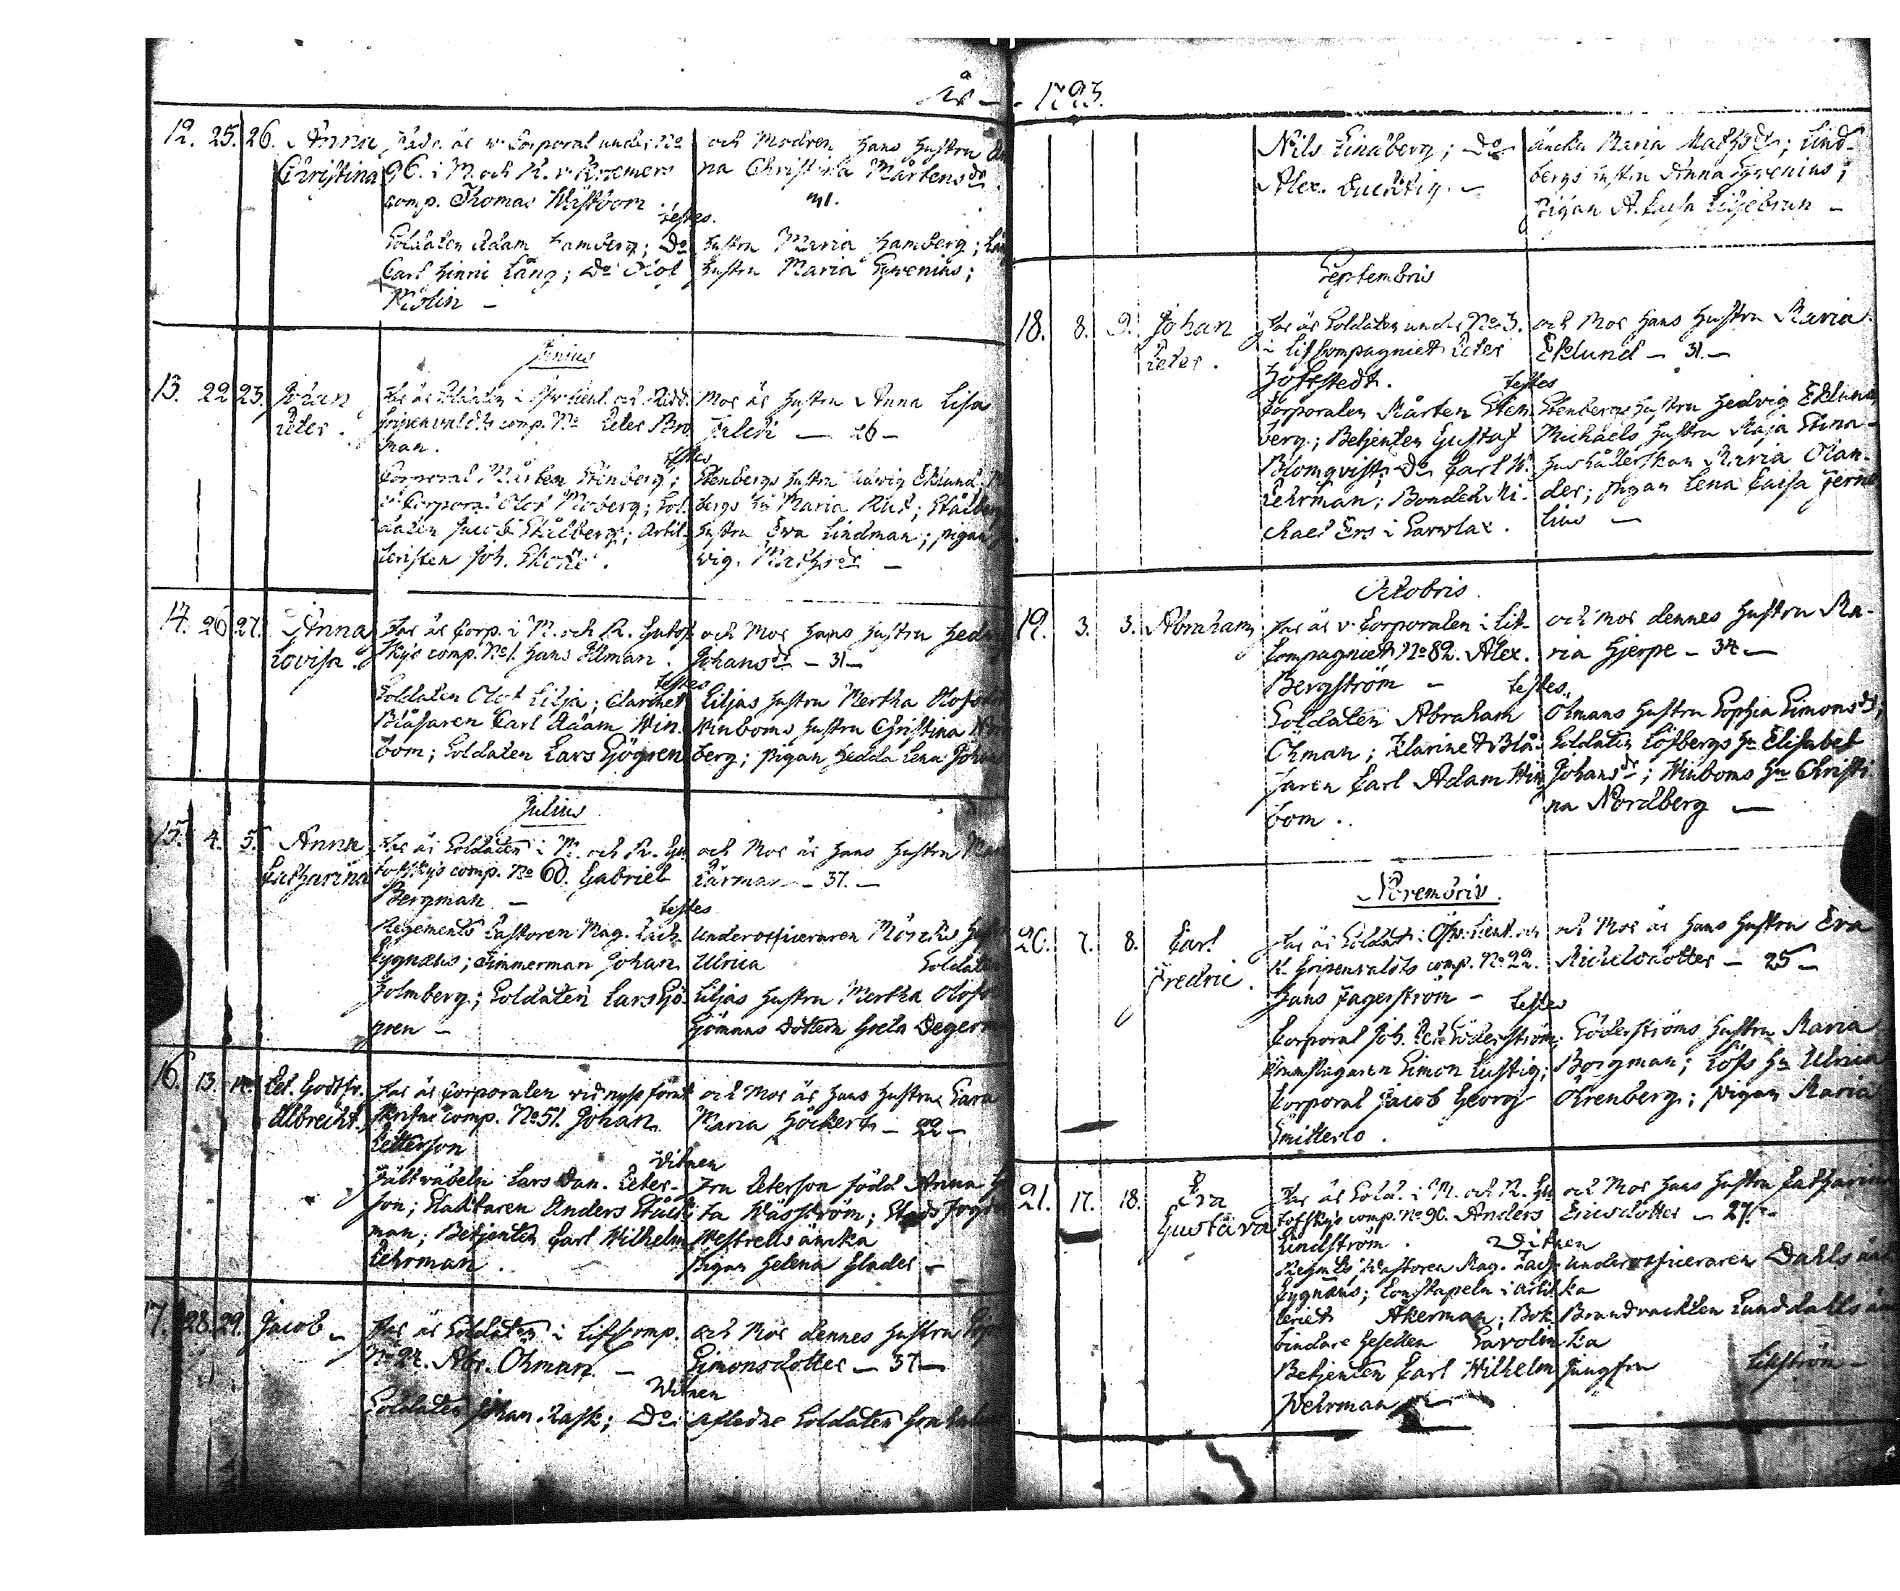 År - 1793.
12. 25. 26. Anna Christina
Fadr. är v. Corporal under No
96. i M. och R. v. Kræmers
comp. Thomas Wästbom.
och Modren hans hustru An
na Christina Mårtensdr.
31.
testes.
Soldaten Adam Hamberg; Do
Carl Hinric Lång; Do Olof
Molin -
hustru Maria Hamberg; Lån
hustru Maria Gyrenius;
Junius
13. 22 23. Johan Peter.
Far är Soldaten i Öfv. Lieut. och Ridd.
Gripenvaldts comp. No Peter Bro
man.
Mor är hustru Anna Lisa
- 26 -
testes
Corporal Mårten Stenberg;
v. Corporal Olof Moberg; Sol
daten Jacob Stålberg; Artil-
leristen Joh.
Stenbergs hustru Hedvig Eklund; M
bergs hu Maria Rud; Stålberg
hustru Eva Lindman; pigan
vig. Mathsdr -
14. 26 27. Anna Lovisa.
Far är Corp. i M. och R. Gutof
skys comp. No 1. Hans Ilman.
och Mor hans hustru Hed
Johansdr - 31 -
testes
Soldaten Olof Lilja; Clarinet
Blåsaren Carl Adam Win
bom; Soldaten Lars Sjögren
Liljas hustru Mertha Olofs
Winboms hustru Christina Nor
berg; pigan Hedda Lena Johans
Julius
15. 4. 5. Anna Catharina
Far är Soldaten i M. och R. Gu
tofskys comp. No 60. Gabriel
Bergman -
och Mor är hans hustru Mar
Färman - 37. -
testes
Regements Pastoren Mag. Zach.
Cygnæus; Timmerman Johan
Holmberg; Soldaten Lars Sjö
gren -
Underofficeraren Hust
Ulrica Soldaten
Liljas hustru Mertha Olofs
dottern Greta Deger
16. 13. 14. Pet. Gottfr. Albrecht.
Far är Corporalen vid nyss förut
skrifne comp. No 51. Johan
Petterson
och Mor är hans hustru Sara
Maria Höckert - 22 -
Vitnen
Fältväbeln Lars Dan. Peter-
son; Slaktaren Anders Stål
man; Betjenten Carl Wilhelm
Lehrman.
Fru Peterson född Anna
ta Wasström; Stads fogd
Westrells äncka
Pigan Helena Glader -
17. 28. 29. Jacob -
Far är Soldaten i Lif Comp.
No 27. Abr. Öhman. -
och Mor dennes hustru
Simonsdotter - 37 -
Vitnen
Soldaten Johan Rask; Do
afledne Soldaten
Nils Lindberg; Do
Alex. Luchtig. -
äncka Maria Mathsdr; Lind-
bergs hustru Anna Gyrenius;
Pigan A. Caisa Liljebrun -
Septembris
18. 8. 9. Johan Peter.
Far är Soldaten under No 3.
i Lif Compagniet Peter
Hofstedt.
och Mor hans hustru Maria
Eklund - 31. -
testes
Corporalen Mårten Sten
berg; Betjenten Gustaf
Blomqvist; Do Carl W.
Lehrman; Bonden Mi-
chael Ers i Sarvlax.
Stenbergs hustru Hedvig Eklund
Michaels hustru Maja Stina
Hushållerskan Maria Olan-
der; pigan Lena Caisa
lius -
Octobris
19. 3. 3. Abraham
Far är v. Corporalen i Lif-
Compagniet No 82. Alex.
Bergström -
och Mor dennes hustru Ma-
ria Hjerpe - 34 -
testes.
Soldaten Abraham
Öhman; Klarinet Blå-
saren Carl Adam Win
bom.
Öhmans hustru Sophia Simonsdr;
Soldaten Löfbergs hu Elisabet
Johansdr; Winboms hu Christi
na Nordberg -
Novembris.
20. 7. 8. Carl Fredric.
Far är Soldat i Öfv. Lieut. och
R. Gripenvaldts comp. No 22.
Hans Fagerström -
och Mor är hans hustru Eva
Michelsdotter - 25 -
testes
Corporal Joh. Söderström;
Trumslagaren Simon Lustig;
Corporal Jacob Georg
Smitterlo.
Söderströms hustru Maria
Borgman; Löfs hu Ulrica
Öhrenberg; pigan Maria
21. 17. 18. Eva Gustava
Far är Sold. i M. och R. Gu
tofskys comp. No 96. Anders
Lindström.
och Mor hans hustru Catharina
Ericsdotter - 27. -
Vitnen
Regmts Pastoren Mag. Zach.
Cygnæus; Constapeln i Artil
leriet Åkerman; Bok
bindare Gesellen Carolin
Betjenten Carl Wilhelm
Wehrman -
Underofficeraren Dahls än
ka
Brandvackten Sunddahls än
ka
Jungfru Likström -